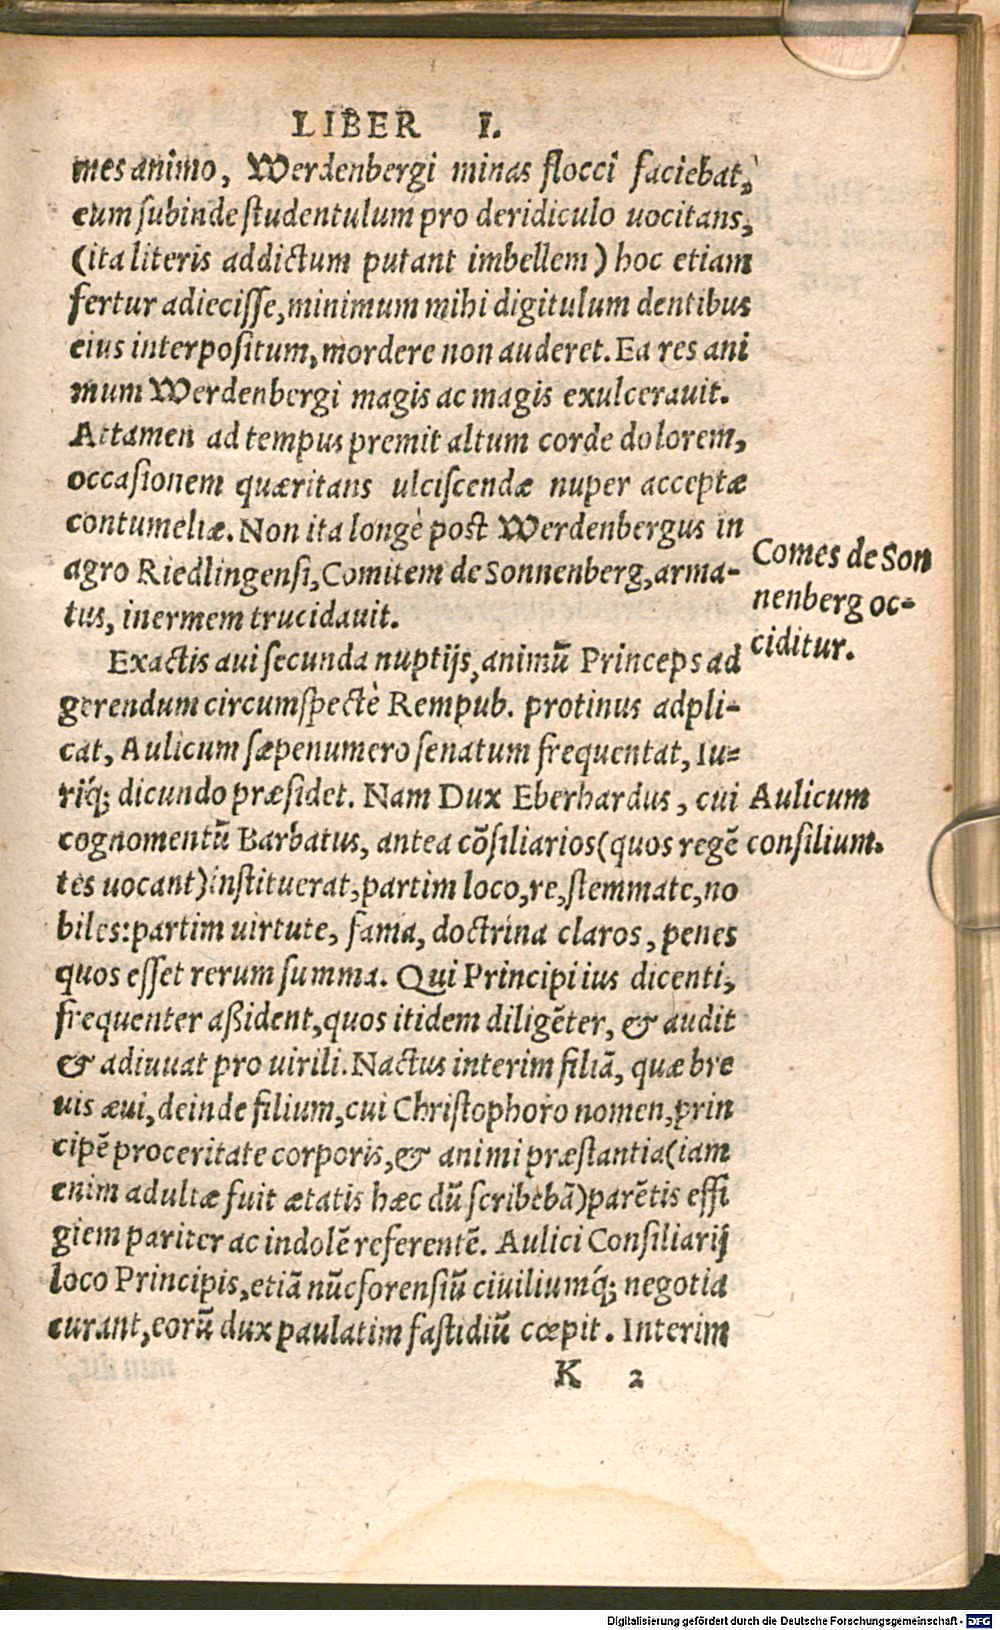 LIBER I.
mes animo, Werdenbergi minas flocci faciebat,
eum subinde studentulum pro deridiculo uocitans,
(ita literis addictum putant imbellem) hoc etiam
fertur adiecisse, minimum mihi digitulum dentibus
eius interpositum, mordere non auderet. Ea res ani
mum Werdenbergi magis ac magis exulcerauit.
Attamen ad tempus premit altum corde dolorem,
occasionem quæritans ulciscendæ nuper acceptæ
contumeliæ. Non ita longè post Werdenbergus in
agro Riedlingensi, Comitem de Sonnenberg, arma-
tus, inermem trucidauit.
Comes de Son
nenberg oc-
ciditur.
Exactis aui secunda nuptijs, animū Princeps ad
gerendum circumspectè Rempub. protinus adpli-
cat, Aulicum sæpenumero senatum frequentat, Iu-
riq́; dicundo præsidet. Nam Dux Eberhardus, cui
cognomentū Barbatus, antea cōsiliarios (quos regē
tes uocant) instituerat, partim loco, re, stemmate, no
biles: partim uirtute, fama, doctrina claros, penes
quos esset rerum summa. Qui Principi ius dicenti,
frequenter aßident, quos itidem diligēter, & audit
& adiuuat pro uirili. Nactus interim filiā, quæ bre
uis æui, deinde filium, cui Christophoro nomen, prin
cipē proceritate corporis, & animi præstantia (iam
enim adultæ fuit ætatis hæc dū scribebā) parētis effi
giem pariter ac indolē referentē. Aulici Consiliarij
loco Principis, etiā nūc forensiū ciuiliumq́; negotia
curant, eorū dux paulatim fastidiū cœpit. Interim
Aulicum
consilium.
K 2
Digitalisierung gefördert durch die Deutsche Forschungsgemeinschaft - DFG